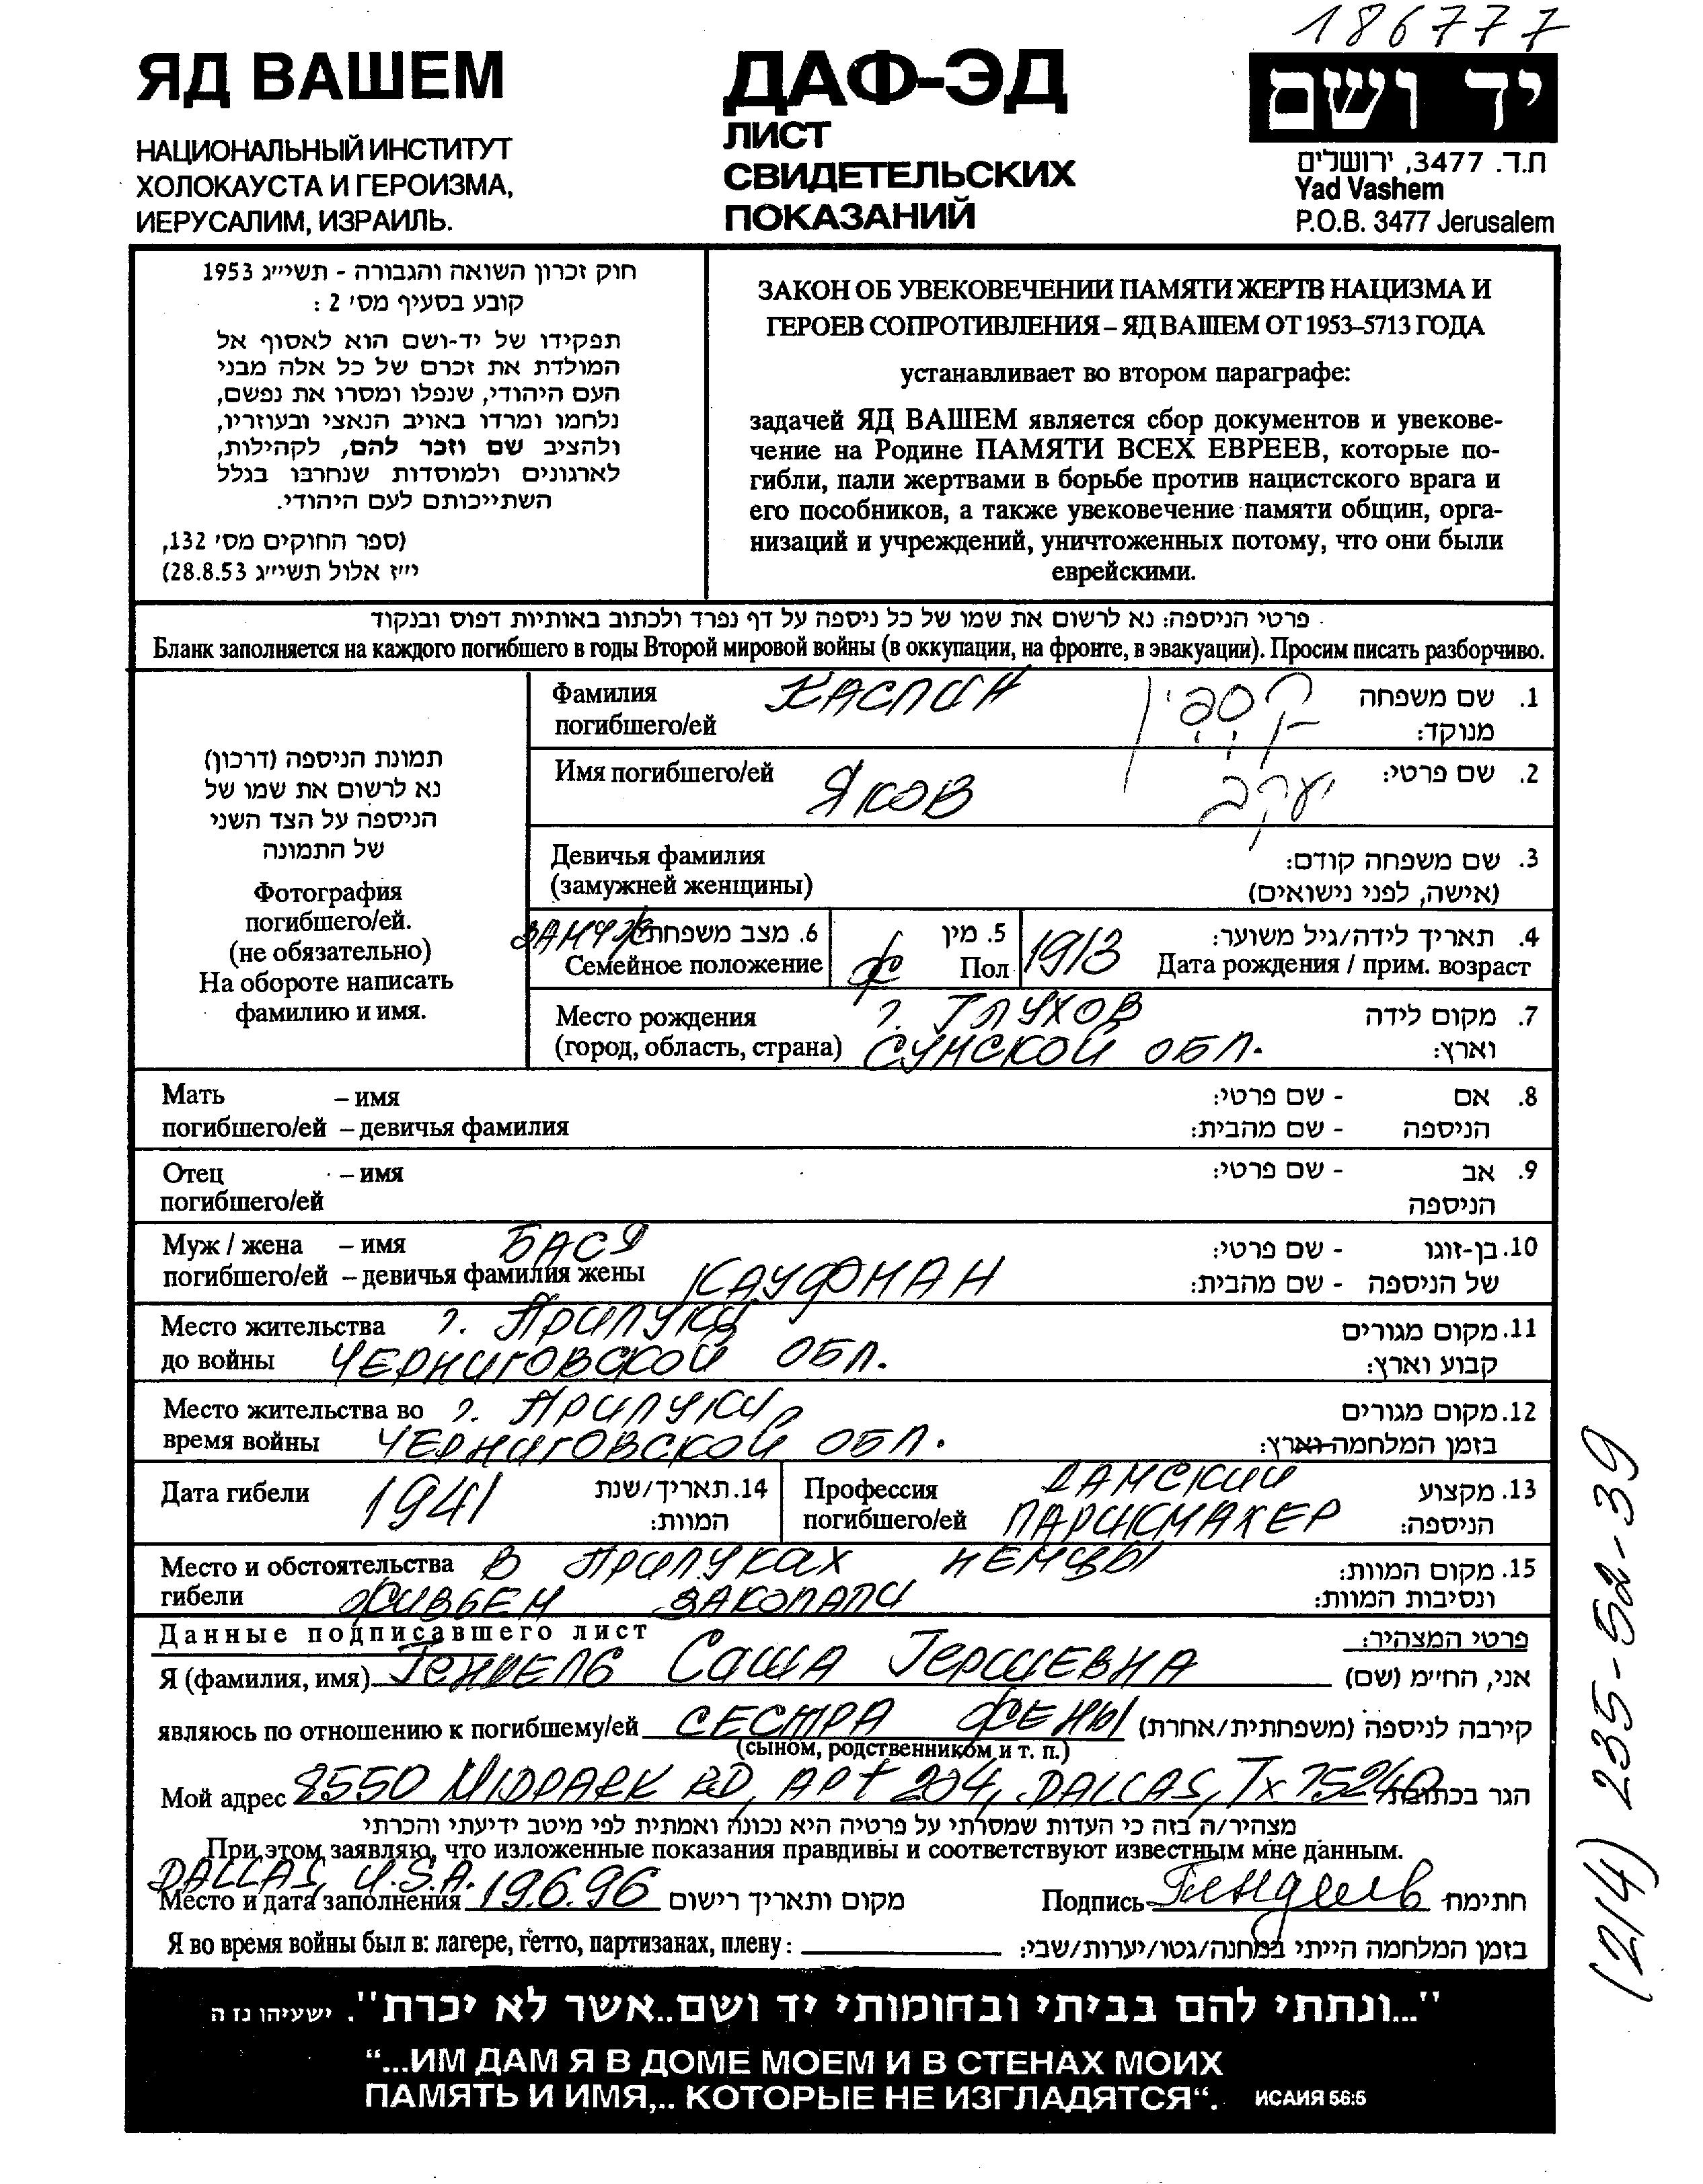 186777
ЯД ВАШЕМ
НАЦИОНАЛЬНЫЙ ИНСТИТУТ
ХОЛОКАУСТА И ГЕРОИЗМА,
ИЕРУСАЛИМ, ИЗРАИЛЬ.
ДАФ-ЭД
ЛИСТ
СВИДЕТЕЛЬСКИХ
ПОКАЗАНИЙ
יד ושם
ת.ד. 3477, ירושלים
Yad Vashem
P.O.B. 3477 Jerusalem
חוק זכרון השואה והגבורה - תשי״ג 1953
קובע בסעיף מס׳ 2 :
תפקידו של יד-ושם הוא לאסוף אל
המולדת את זכרם של כל אלה מבני
העם היהודי, שנפלו ומסרו את נפשם,
נלחמו ומרדו באויב הנאצי ובעוזריו,
ולהציב שם וזכר להם, לקהילות,
לארגונים ולמוסדות שנחרבו בגלל
השתייכותם לעם היהודי.
(ספר החוקים מס׳ 132,
י״ז אלול תשי״ג 28.8.53)
ЗАКОН ОБ УВЕКОВЕЧЕНИИ ПАМЯТИ ЖЕРТВ НАЦИЗМА И
ГЕРОЕВ СОПРОТИВЛЕНИЯ – ЯД ВАШЕМ ОТ 1953–5713 ГОДА
устанавливает во втором параграфе:
задачей ЯД ВАШЕМ является сбор документов и увекове-
чение на Родине ПАМЯТИ ВСЕХ ЕВРЕЕВ, которые по-
гибли, пали жертвами в борьбе против нацистского врага и
его пособников, а также увековечение памяти общин, орга-
низаций и учреждений, уничтоженных потому, что они были
еврейскими.
פרטי הניספה: נא לרשום את שמו של כל ניספה על דף נפרד ולכתוב באותיות דפוס ובנקוד
Бланк заполняется на каждого погибшего в годы Второй мировой войны (в оккупации, на фронте, в эвакуации). Просим писать разборчиво.
תמונת הניספה (דרכון)
נא לרשום את שמו של
הניספה על הצד השני
של התמונה
Фотография
погибшего/ей.
(не обязательно)
На обороте написать
фамилию и имя.
Фамилия КАСПИН קספין 1. שם משפחה
погибшего/ей מנוקד:
Имя погибшего/ей Яков יעקב 2. שם פרטי:
Девичья фамилия 3. שם משפחה קודם:
(замужней женщины) (אישה, לפני נישואים)
ЗАМУЖ 6. מצב משפחתי 5. מין 1913 4. תאריך לידה/גיל משוער:
Семейное положение Ж Пол Дата рождения / прим. возраст
Место рождения г. ГЛУХОВ 7. מקום לידה
(город, область, страна) СУМСКОЙ ОБЛ. וארץ:
Мать – имя - שם פרטי: אם 8.
погибшего/ей – девичья фамилия - שם מהבית: הניספה
Отец – имя - שם פרטי: אב 9.
погибшего/ей הניספה
Муж / жена – имя БАСЯ - שם פרטי: 10. בן-זוגו
погибшего/ей – девичья фамилия жены КАУФМАН - שם מהבית: של הניספה
Место жительства г. Прилуки 11. מקום מגורים
до войны ЧЕРНИГОВСКОЙ ОБЛ. קבוע וארץ:
Место жительства во г. Прилуки, 12. מקום מגורים
время войны ЧЕРНИГОВСКОЙ ОБЛ. בזמן המלחמה וארץ:
Дата гибели 1941 14. תאריך/שנת המוות:
Профессия ДАМСКИЙ 13. מקצוע
погибшего/ей ПАРИКМАХЕР הניספה:
Место и обстоятельства В Прилуках НЕМЦЫ 15. מקום המוות:
гибели ЖИВЬЕМ ЗАКОПАЛИ ונסיבות המוות:
Данные подписавшего лист פרטי המצהיר:
Я (фамилия, имя) ГЕНДЕЛЬ Саша ГЕРШЕВНА אני, הח״מ (שם)
являюсь по отношению к погибшему/ей СЕСТРА ЖЕНЫ קירבה לניספה (משפחתית/אחרת)
(сыном, родственником и т. п.)
Мой адрес 8550 MIDPARK RD, APT 204, DALLAS, TX 75240 הגר בכתובת
מצהיר/ה בזה כי העדות שמסרתי על פרטיה היא נכונה ואמתית לפי מיטב ידיעתי והכרתי
При этом заявляю, что изложенные показания правдивы и соответствуют известным мне данным.
DALLAS, U.S.A.
Место и дата заполнения 19.6.96 מקום ותאריך רישום Подпись Гендель חתימת
Я во время войны был в: лагере, гетто, партизанах, плену: בזמן המלחמה הייתי במחנה/גטו/יערות/שבי:
"...ונתתי להם בביתי ובחומותי יד ושם..אשר לא יכרת". ישעיהו נז ה
“...ИМ ДАМ Я В ДОМЕ МОЕМ И В СТЕНАХ МОИХ
ПАМЯТЬ И ИМЯ,.. КОТОРЫЕ НЕ ИЗГЛАДЯТСЯ“. ИСАИЯ 56:5
(214) 235-52-39